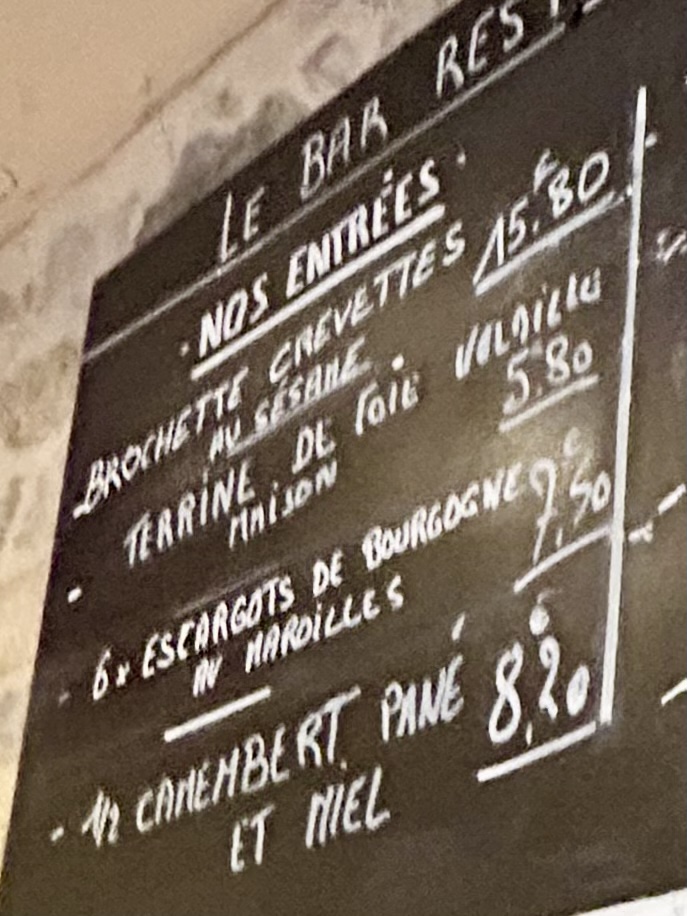 LE BAR REST
· NOS ENTRÉES ·
- BROCHETTE CREVETTES 15.80
AU SÉSAME
- TERRINE DE FOIE VOLAILLE
MAISON 5.80
- 6x ESCARGOTS DE BOURGOGNE
AU MAROILLES
- 1/2 CAMEMBERT PANÉ 8,20
ET MIEL